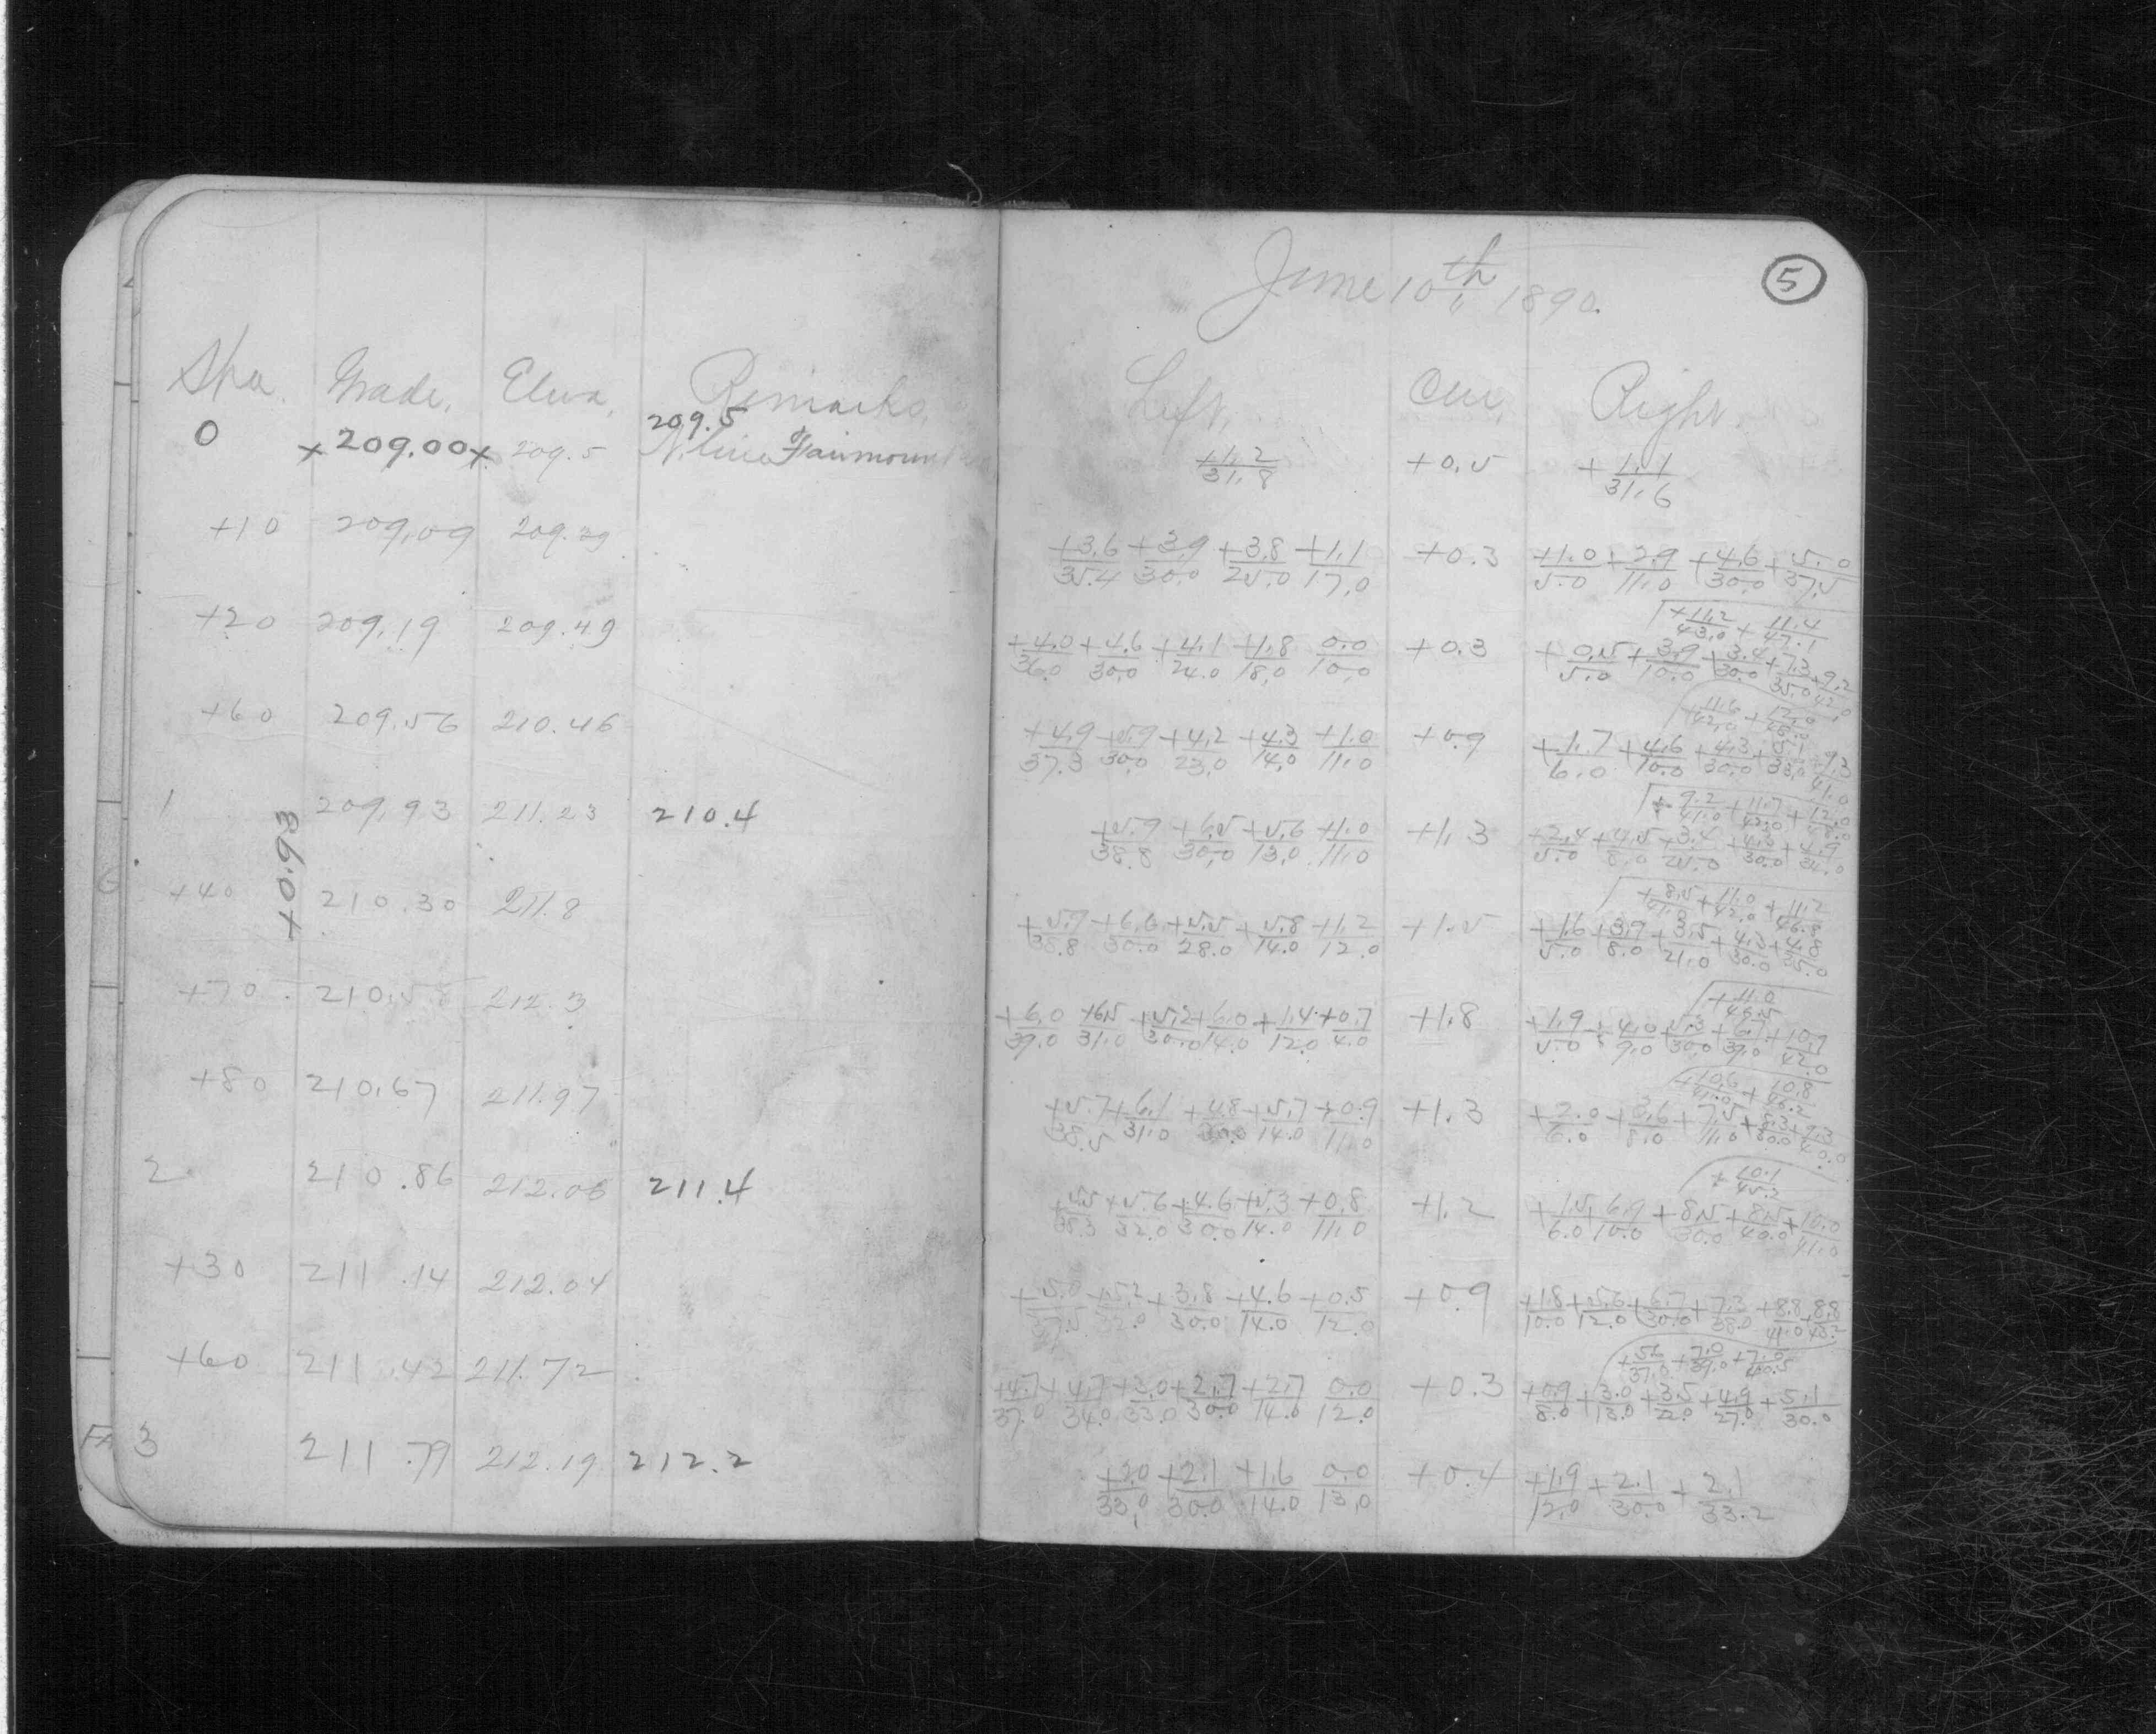 June 10th, 1890.
5
Sta. Grade, Elev, Remarks,
209.5
0 x 209.00 x 209.5 N. line of Fairmount
+10 209.09 209.39
+20 209.19 209.49
+60 209.56 210.46
1 209.93 211.23 210.4
+0.93
+40 210.30 211.8
+70 212.3
+80 210.67 211.97
2 210.86 212.06 211.4
+30 211.14 212.04
+60 211.42 211.72
3 211.79 212.19 212.2
Left, Right,
+1.2/31.8 +0.5 +1.1/31.6
+3.6/35.4 +3.9/30.0 +3.8/25.0 +1.1/17.0 +0.3 +1.0/5.0 +2.9/11.0 +4.6/30.0 +5.0/37.5
+11.2/43.0 +11.4/47.1
+4.0/36.0 +4.6/30.0 +4.1/24.0 +1.8/18.0 0.0/10.0 +0.3 +0.5/5.0 +3.9/10.0 +3.4/30.0 +7.3/35.0 +9.2/42.0
+11.6/42.0 +12.0/48.0
+4.9/37.3 +5.9/30.0 +4.2/23.0 +4.3/14.0 +1.0/11.0 +0.9 +1.7/6.0 +4.6/10.0 +4.3/30.0 +5.1/33.0 +9.3/41.0
+9.2/41.0 +11.7/42.0 +12.0/48.0
+5.9/38.8 +6.5/30.0 +5.6/13.0 +1.0/11.0 +1.3 +2.4/5.0 +4.5/8.0 +3.4/25.0 +4.3/30.0 +4.9/34.0
+8.5/41.0 +11.0/42.0 +11.2/46.8
+5.7/38.8 +6.6/30.0 +5.5/28.0 +5.8/14.0 +1.2/12.0 +1.5 +1.6/5.0 +3.9/8.0 +3.5/21.0 +4.3/30.0 +4.8/35.0
+11.0/46.5
+6.0/39.0 +6.5/31.0 +5.2/30.0 +6.0/14.0 +1.4/12.0 +0.7/4.0 +1.8 +1.9/5.0 +4.0/9.0 +5.3/30.0 +6.7/39.0 +10.7/42.0
+10.6/41.0 +10.8/46.2
+5.7/38.5 +6.1/31.0 +4.8/30.0 +5.7/14.0 +0.9/11.0 +1.3 +2.0/6.0 +3.6/8.0 +7.5/11.0 +8.3/30.0 +9.3/40.0
+10.1/45.2
+5.5/38.3 +5.6/32.0 +4.6/30.0 +5.3/14.0 +0.8/11.0 +1.2 +1.5/6.0 6.9/10.0 +8.5/30.0 +8.5/40.0 +10.0/41.0
+5.0/37.5 +5.2/32.0 +3.8/30.0 +4.6/14.0 +0.5/12.0 +0.9 +1.8/10.0 +5.6/12.0 +6.7/30.0 +7.3/38.0 +8.8/41.0 +8.8/43.2
+7.0/39.0 +7.0/40.5
+4.7/37.0 +4.7/34.0 +2.0/33.0 +2.7/30.0 +2.7/14.0 0.0/12.0 +0.3 +0.9/8.0 +3.0/13.0 +3.5/22.0 +4.9/27.0 +5.1/30.0
+2.0/33.0 +2.1/30.0 +1.6/14.0 0.0/13.0 +0.4 +1.9/12.0 +2.1/30.0 +2.1/33.2